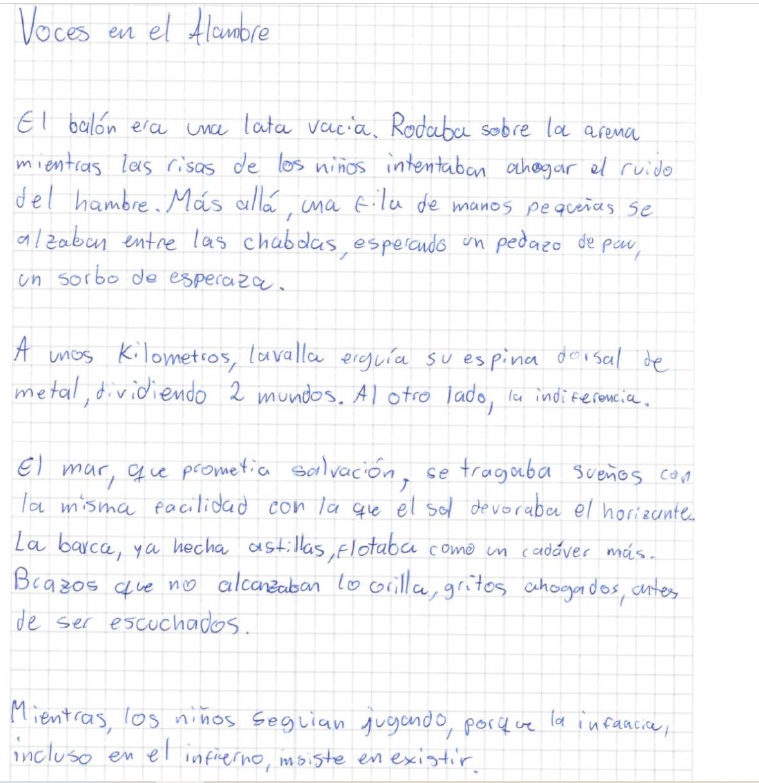 Voces en el Alambre
El balón era una lata vacia. Rodaba sobre la arena
mientras las risas de los niños intentaban ahogar el ruido
del hambre. Más allá, una fila de manos pequeñas se
alzaban entre las chabolas, esperando un pedazo de pan,
un sorbo de esperaza.
A unos Kilometros, lavalla erguía su espina dorsal de
metal, dividiendo 2 mundos. Al otro lado, la indiferencia.
El mar, que prometia salvación, se tragaba sueños con
la misma facilidad con la que el sol devoraba el horizonte.
La barca, ya hecha astillas, flotaba como un cadáver más.
Brazos que no alcanzaban la orilla, gritos ahogados, antes
de ser escuchados.
Mientras, los niños seguian jugando, porque la infancia,
incluso en el infierno, insiste en existir.